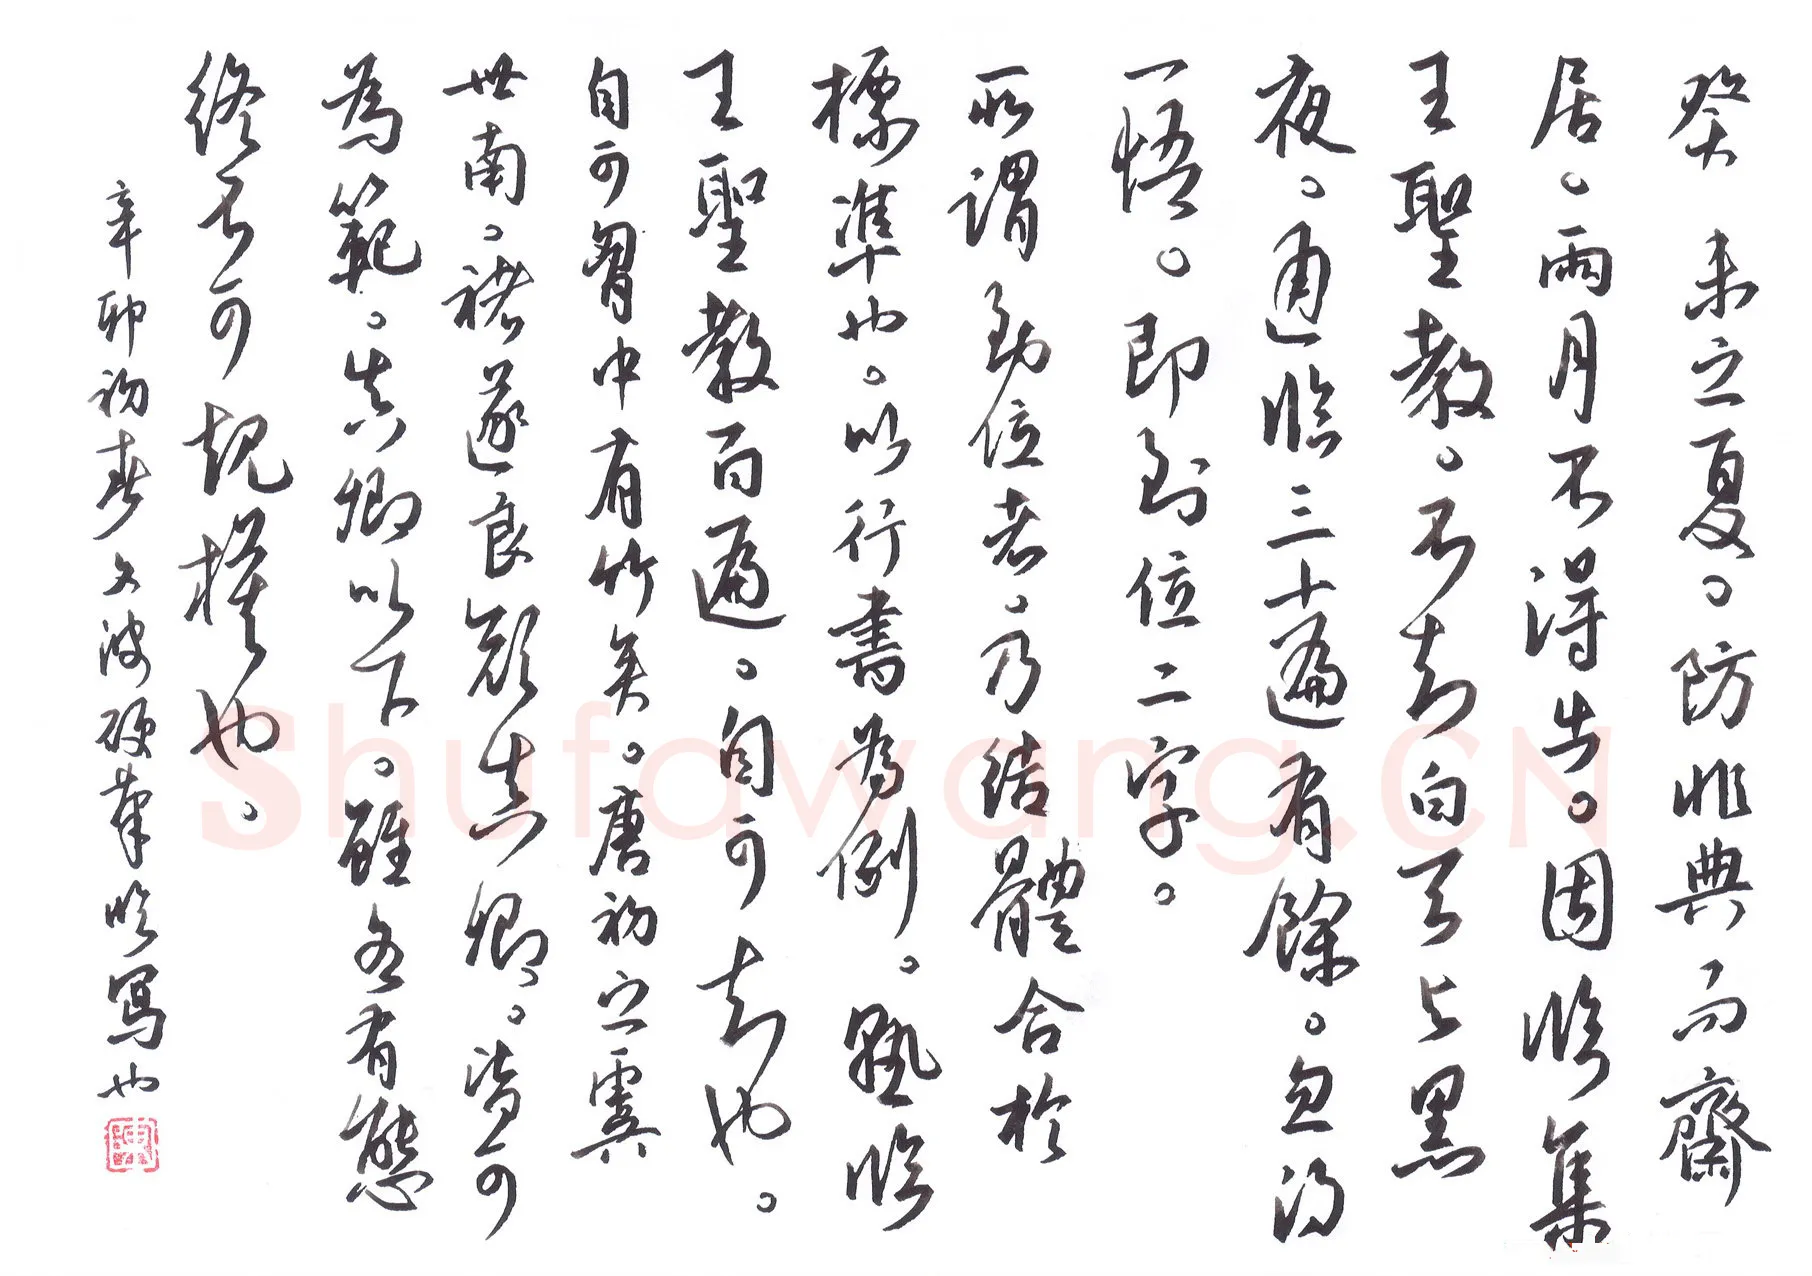 癸未之夏。防非典而齋
居。兩月不得出。因臨集
王聖教。不知白天与黑
夜。通臨三十遍有餘。忽得
一悟。即到位二字。
所謂到位者。乃結體合於
標準也。以行書為例。熟臨
王聖教百遍。自可知也。
自可胷中有竹矣。唐初之虞
世南。褚遂良顏真卿。皆可
為範。真卿以下。雖各有態
終不可規模也。
辛卯初春文波硬筆臨寫也
Shufawang.CN